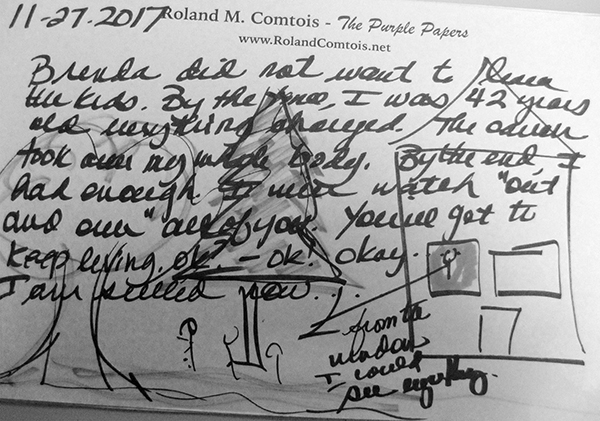 11-27.2017
Roland M. Comtois - The Purple Papers
www.RolandComtois.net
Brenda did not want to leave
the kids. By the time, I was 42 years
old everything changed. The cancer
took over my whole body. By the end I
had enough. I will watch "out
and over" all of you. You've got to
keep living. ok? - ok! okay...
I am settled now...
from the
window
I could
see everything.